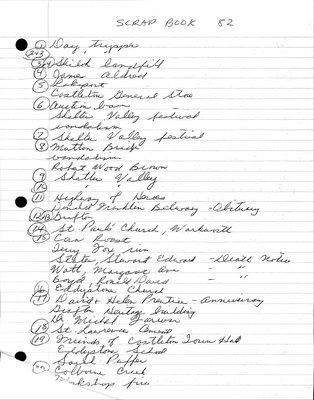 SCRAP BOOK 82
① Day tripper
②+③
③④ Shield landfill
④ James Aldred
⑤ Lakeport
Castleton General Store
⑥ Auction barn
Shelter Valley festival
vandalism
⑦ Shelter Valley festival
⑧ Mutton Brick
vandalism
Robert Wood Brown
⑨ Shelter Valley
⑩ " "
⑪ Highway of Heroes
Donald Franklin Belway - Obituary
⑫⑬ Grafton
⑭ St. Paul's Church, Warkworth
⑮ Can Roast
Terry Fox run
Staton, Steward Edward - Death Notice
Watt, Margaret Ann - "
Boyd, Ronald David - "
⑯ Eddystone Church
⑰ David + Helen Prentice - anniversary
Grafton Heritage building
Dr Michel
⑱ St. Lawrence Cement
⑲ Friends of Castleton Town Hall
Eddystone School
Puffer
⑳ Colborne Creek
Workshop fire